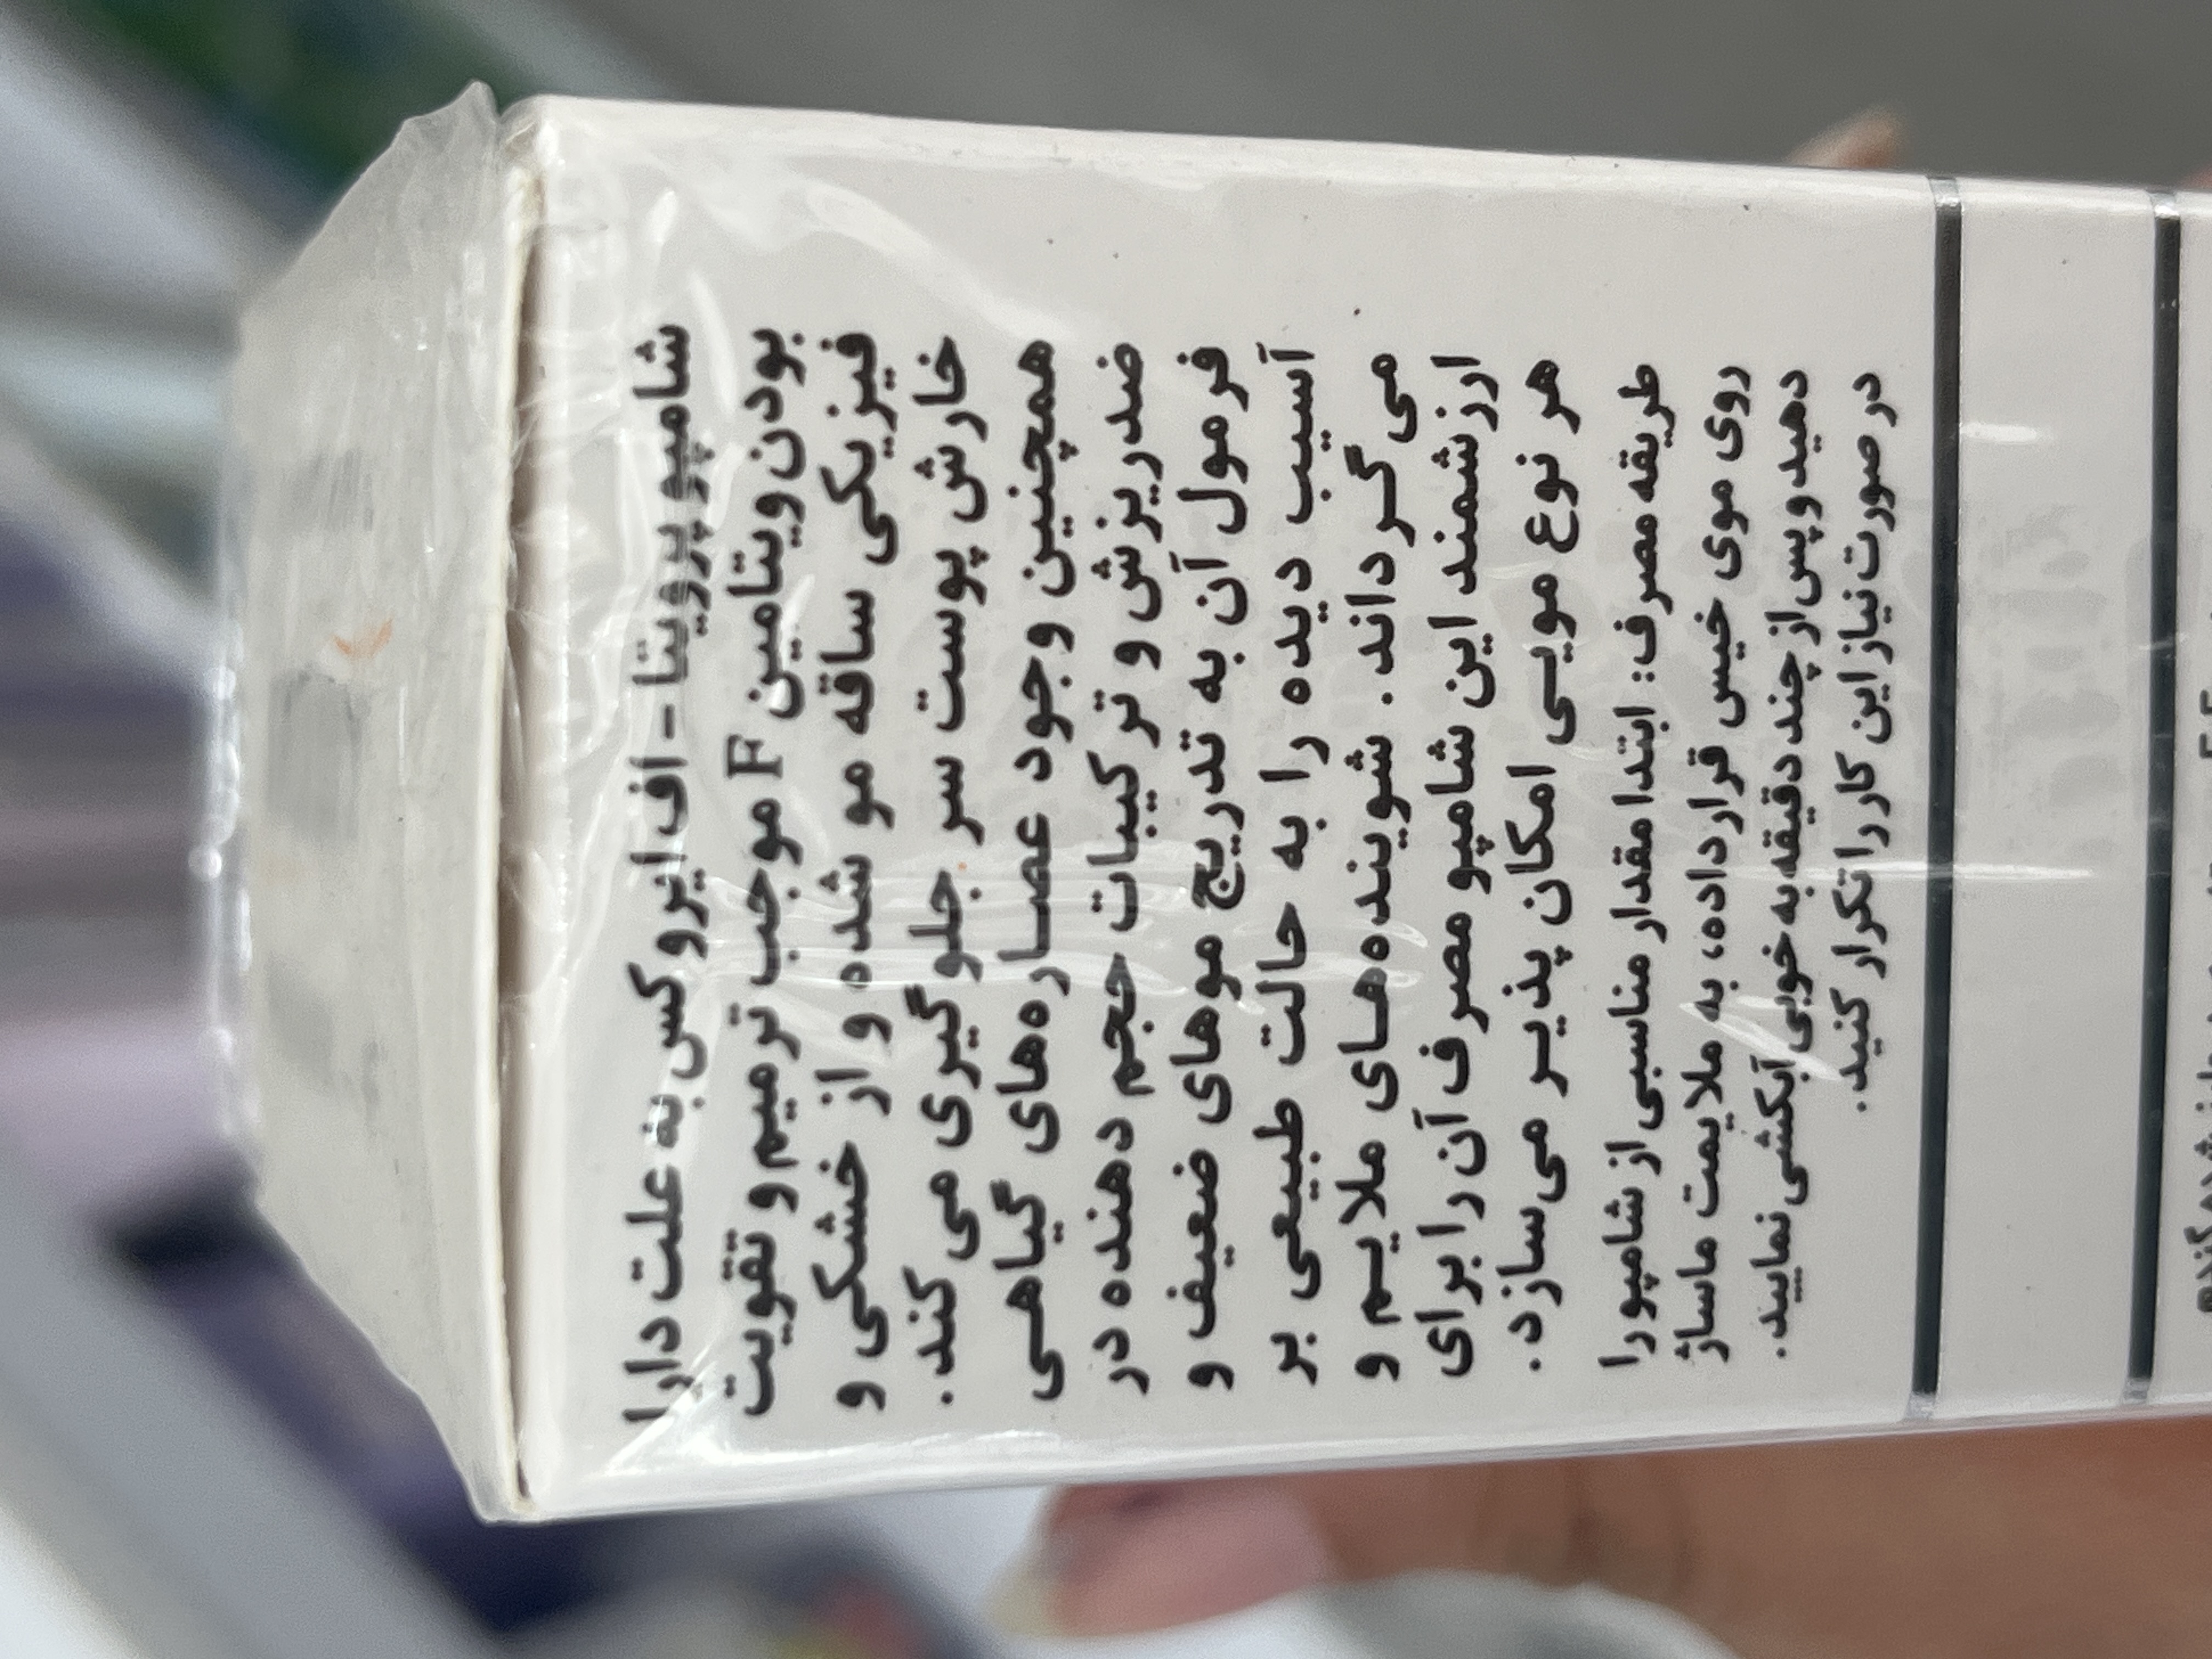 شامپو پرویتا - اف ایروکس به علت دارا
بودن ویتامین F موجب ترمیم و تقویت
فیزیکی ساقه مو شده و از خشکی و
خارش پوست سر جلوگیری می کند.
همچنین وجود عصاره‌های گیاهی
ضدریزش و ترکیبات حجم دهنده در
فرمول آن به تدریج موهای ضعیف و
آسیب دیده را به حالت طبیعی بر
می گرداند. شوینده‌های ملایم و
ارزشمند این شامپو مصرف آن را برای
هر نوع مویی امکان پذیر می‌سازد.
طریقه مصرف: ابتدا مقدار مناسبی از شامپو را
روی موی خیس قرار داده، به ملایمت ماساژ
دهید و پس از چند دقیقه به خوبی آبکشی نمایید.
در صورت نیاز این کار را تکرار کنید.